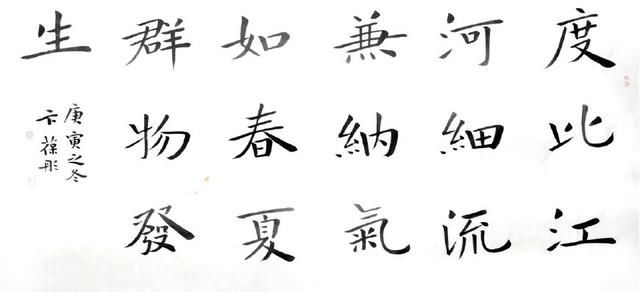 度比江
河細流
兼納氣
如春夏
群物發
生
庚寅之冬
卞葆彤